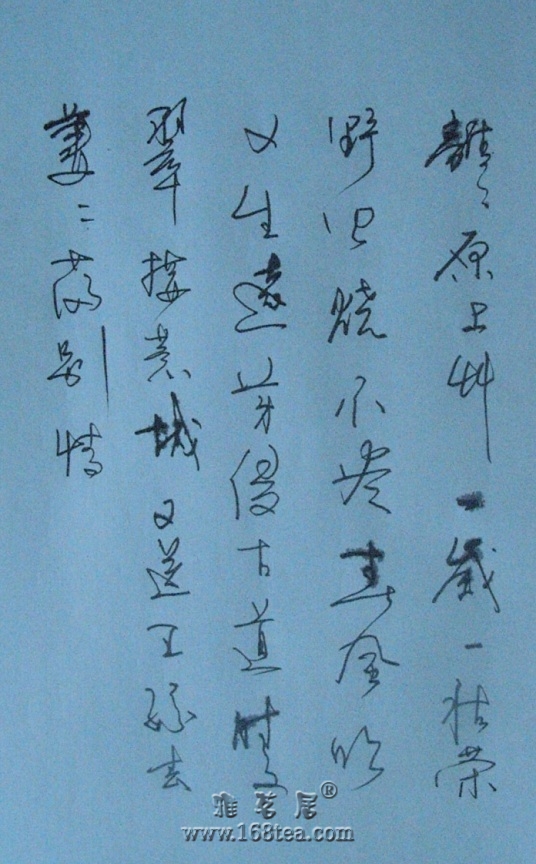 離々原上艸一歲一枯荣
野火烧不尽春风吹
又生遠芳侵古道晴
翠接荒城又送王孫去
萋々满别情
雅茗居®
www.168tea.com